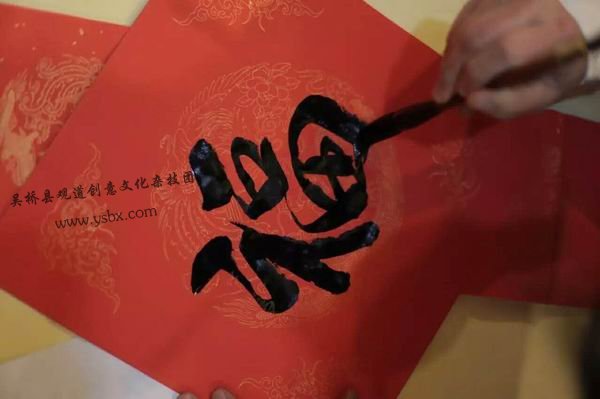 福
吴桥县观道创意文化杂技团
www.ysbx.com